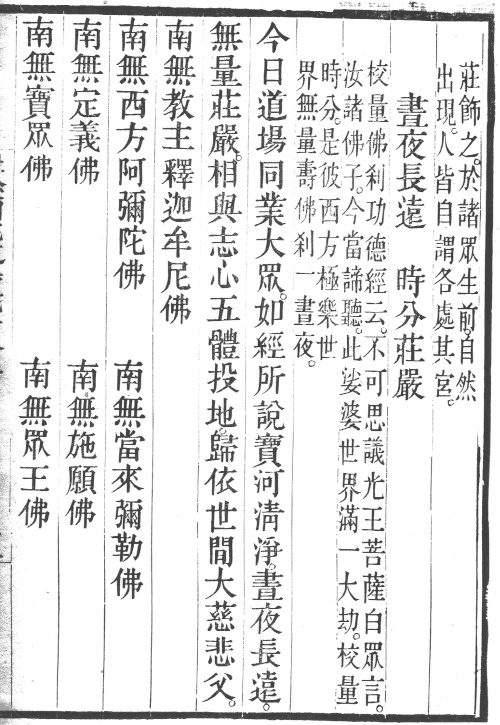 莊飾之。於諸眾生前。自然
出現。人皆自謂各處其宮。
晝夜長遠　時分莊嚴
校量佛刹功德經云。不可思議光王菩薩白眾言。
汝諸佛子。今當諦聽。此娑婆世界滿一大劫。校量
時分。是彼西方極樂世
界無量壽佛刹一晝夜。
今日道場同業大眾。如經所說寶河清淨。晝夜長遠。
無量莊嚴。相與志心五體投地。歸依世間大慈悲父。
南無教主釋迦牟尼佛
南無西方阿彌陀佛　南無當來彌勒佛
南無定義佛　南無施願佛
南無寶眾佛　南無眾王佛